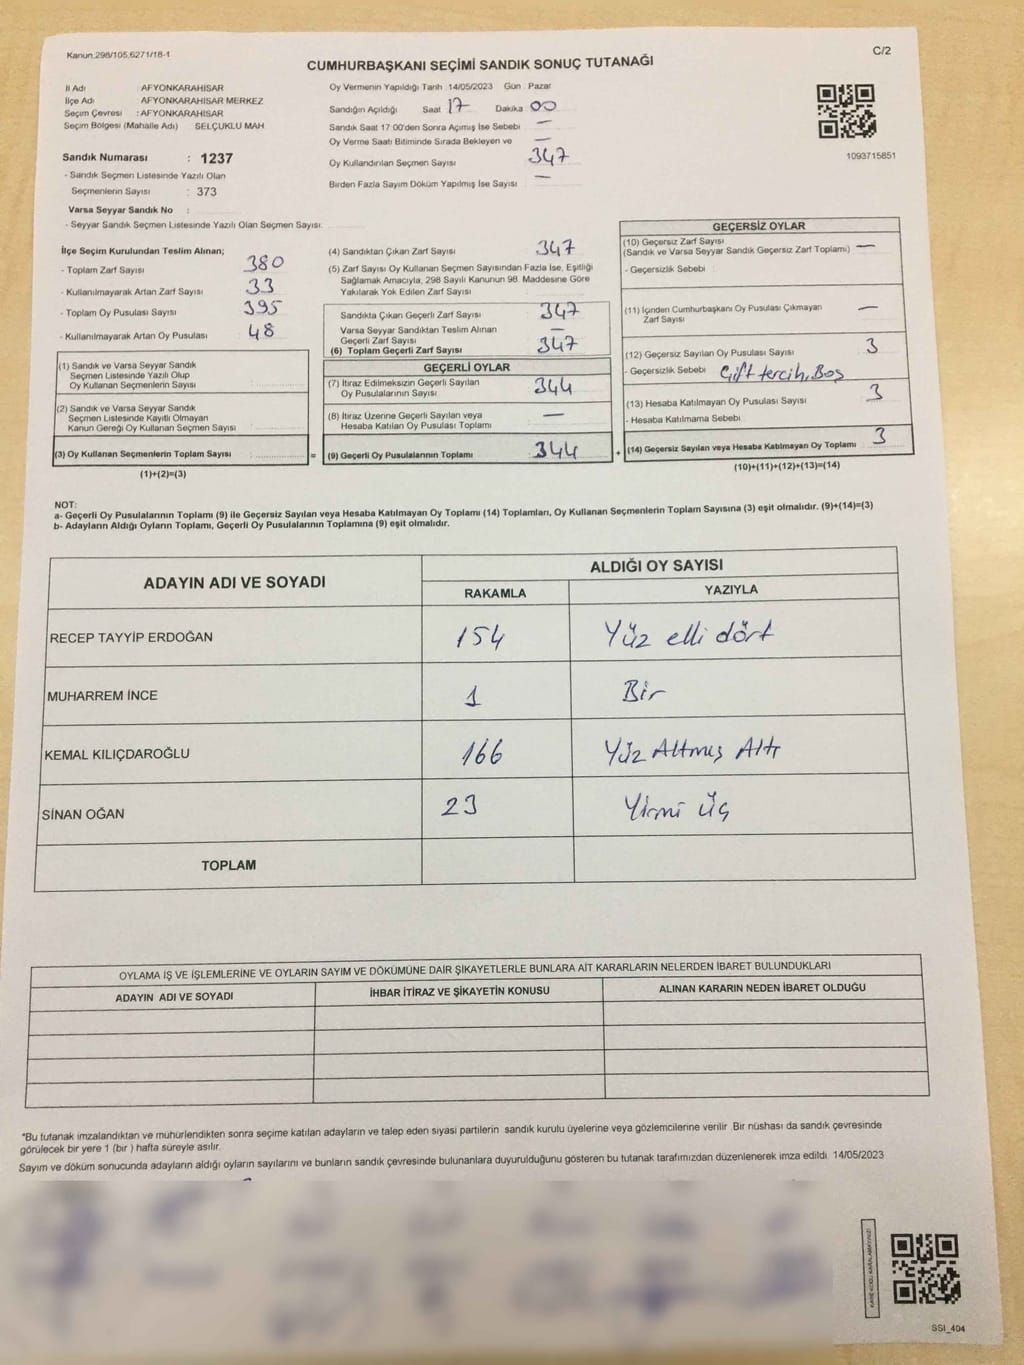 Kanun.298/105,6271/18-1
C/2
CUMHURBAŞKANI SEÇİMİ SANDIK SONUÇ TUTANAĞI
İl Adı : AFYONKARAHİSAR
İlçe Adı AFYONKARAHİSAR MERKEZ
Seçim Çevresi : AFYONKARAHİSAR
Seçim Bölgesi (Mahalle Adı) SELÇUKLU MAH.
Sandık Numarası : 1237
- Sandık Seçmen Listesinde Yazılı Olan
Seçmenlerin Sayısı : 373
Varsa Seyyar Sandık No :
- Seyyar Sandık Seçmen Listesinde Yazılı Olan Seçmen Sayısı:
Oy Vermenin Yapıldığı Tarih :14/05/2023 Gün : Pazar
Sandığın Açıldığı Saat 17 Dakika 00
Sandık Saat 17:00'den Sonra Açılmış İse Sebebi —
Oy Verme Saati Bitiminde Sırada Bekleyen ve —
Oy Kullandırılan Seçmen Sayısı 347
Birden Fazla Sayım Döküm Yapılmış İse Sayısı —
1093715851
İlçe Seçim Kurulundan Teslim Alınan;
- Toplam Zarf Sayısı 380
- Kullanılmayarak Artan Zarf Sayısı 33
- Toplam Oy Pusulası Sayısı 395
- Kullanılmayarak Artan Oy Pusulası 48
(1) Sandık ve Varsa Seyyar Sandık
Seçmen Listesinde Yazılı Olup
Oy Kullanan Seçmenlerin Sayısı
(2) Sandık ve Varsa Seyyar Sandık
Seçmen Listesinde Kayıtlı Olmayan
Kanun Gereği Oy Kullanan Seçmen Sayısı
(3) Oy Kullanan Seçmenlerin Toplam Sayısı
=
(1)+(2)=(3)
(4) Sandıktan Çıkan Zarf Sayısı 347
(5) Zarf Sayısı Oy Kullanan Seçmen Sayısından Fazla İse, Eşitliği
Sağlamak Amacıyla, 298 Sayılı Kanunun 98. Maddesine Göre
Yakılarak Yok Edilen Zarf Sayısı
Sandıkta Çıkan Geçerli Zarf Sayısı 347
Varsa Seyyar Sandıktan Teslim Alınan
Geçerli Zarf Sayısı —
(6) Toplam Geçerli Zarf Sayısı 347
GEÇERLİ OYLAR
(7) İtiraz Edilmeksizin Geçerli Sayılan
Oy Pusulalarının Sayısı 344
(8) İtiraz Üzerine Geçerli Sayılan veya
Hesaba Katılan Oy Pusulası Toplamı —
(9) Geçerli Oy Pusulalarının Toplamı 344
+
GEÇERSİZ OYLAR
(10) Geçersiz Zarf Sayısı
(Sandık ve Varsa Seyyar Sandık Geçersiz Zarf Toplamı) —
- Geçersizlik Sebebi :
(11) İçinden Cumhurbaşkanı Oy Pusulası Çıkmayan
Zarf Sayısı —
(12) Geçersiz Sayılan Oy Pusulası Sayısı 3
- Geçersizlik Sebebi Çift tercih, Boş
(13) Hesaba Katılmayan Oy Pusulası Sayısı 3
- Hesaba Katılmama Sebebi :
(14) Geçersiz Sayılan veya Hesaba Katılmayan Oy Toplamı 3
(10)+(11)+(12)+(13)=(14)
NOT:
a- Geçerli Oy Pusulalarının Toplamı (9) ile Geçersiz Sayılan veya Hesaba Katılmayan Oy Toplamı (14) Toplamları, Oy Kullanan Seçmenlerin Toplam Sayısına (3) eşit olmalıdır. (9)+(14)=(3)
b- Adayların Aldığı Oyların Toplamı, Geçerli Oy Pusulalarının Toplamına (9) eşit olmalıdır.
ADAYIN ADI VE SOYADI
ALDIĞI OY SAYISI
RAKAMLA YAZIYLA
RECEP TAYYİP ERDOĞAN 154 Yüz elli dört
MUHARREM İNCE 1 Bir
KEMAL KILIÇDAROĞLU 166 Yüz Altmış Altı
SİNAN OĞAN 23 Yirmi üç
TOPLAM
OYLAMA İŞ VE İŞLEMLERİNE VE OYLARIN SAYIM VE DÖKÜMÜNE DAİR ŞİKAYETLERLE BUNLARA AİT KARARLARIN NELERDEN İBARET BULUNDUKLARI
ADAYIN ADI VE SOYADI İHBAR İTİRAZ VE ŞİKAYETİN KONUSU ALINAN KARARIN NEDEN İBARET OLDUĞU
*Bu tutanak imzalandıktan ve mühürlendikten sonra seçime katılan adayların ve talep eden siyasi partilerin sandık kurulu üyelerine veya gözlemcilerine verilir. Bir nüshası da sandık çevresinde
görülecek bir yere 1 (bir ) hafta süreyle asılır.
Sayım ve döküm sonucunda adayların aldığı oyların sayılarını ve bunların sandık çevresinde bulunanlara duyurulduğunu gösteren bu tutanak tarafımızdan düzenlenerek imza edildi. 14/05/2023
SSİ_404